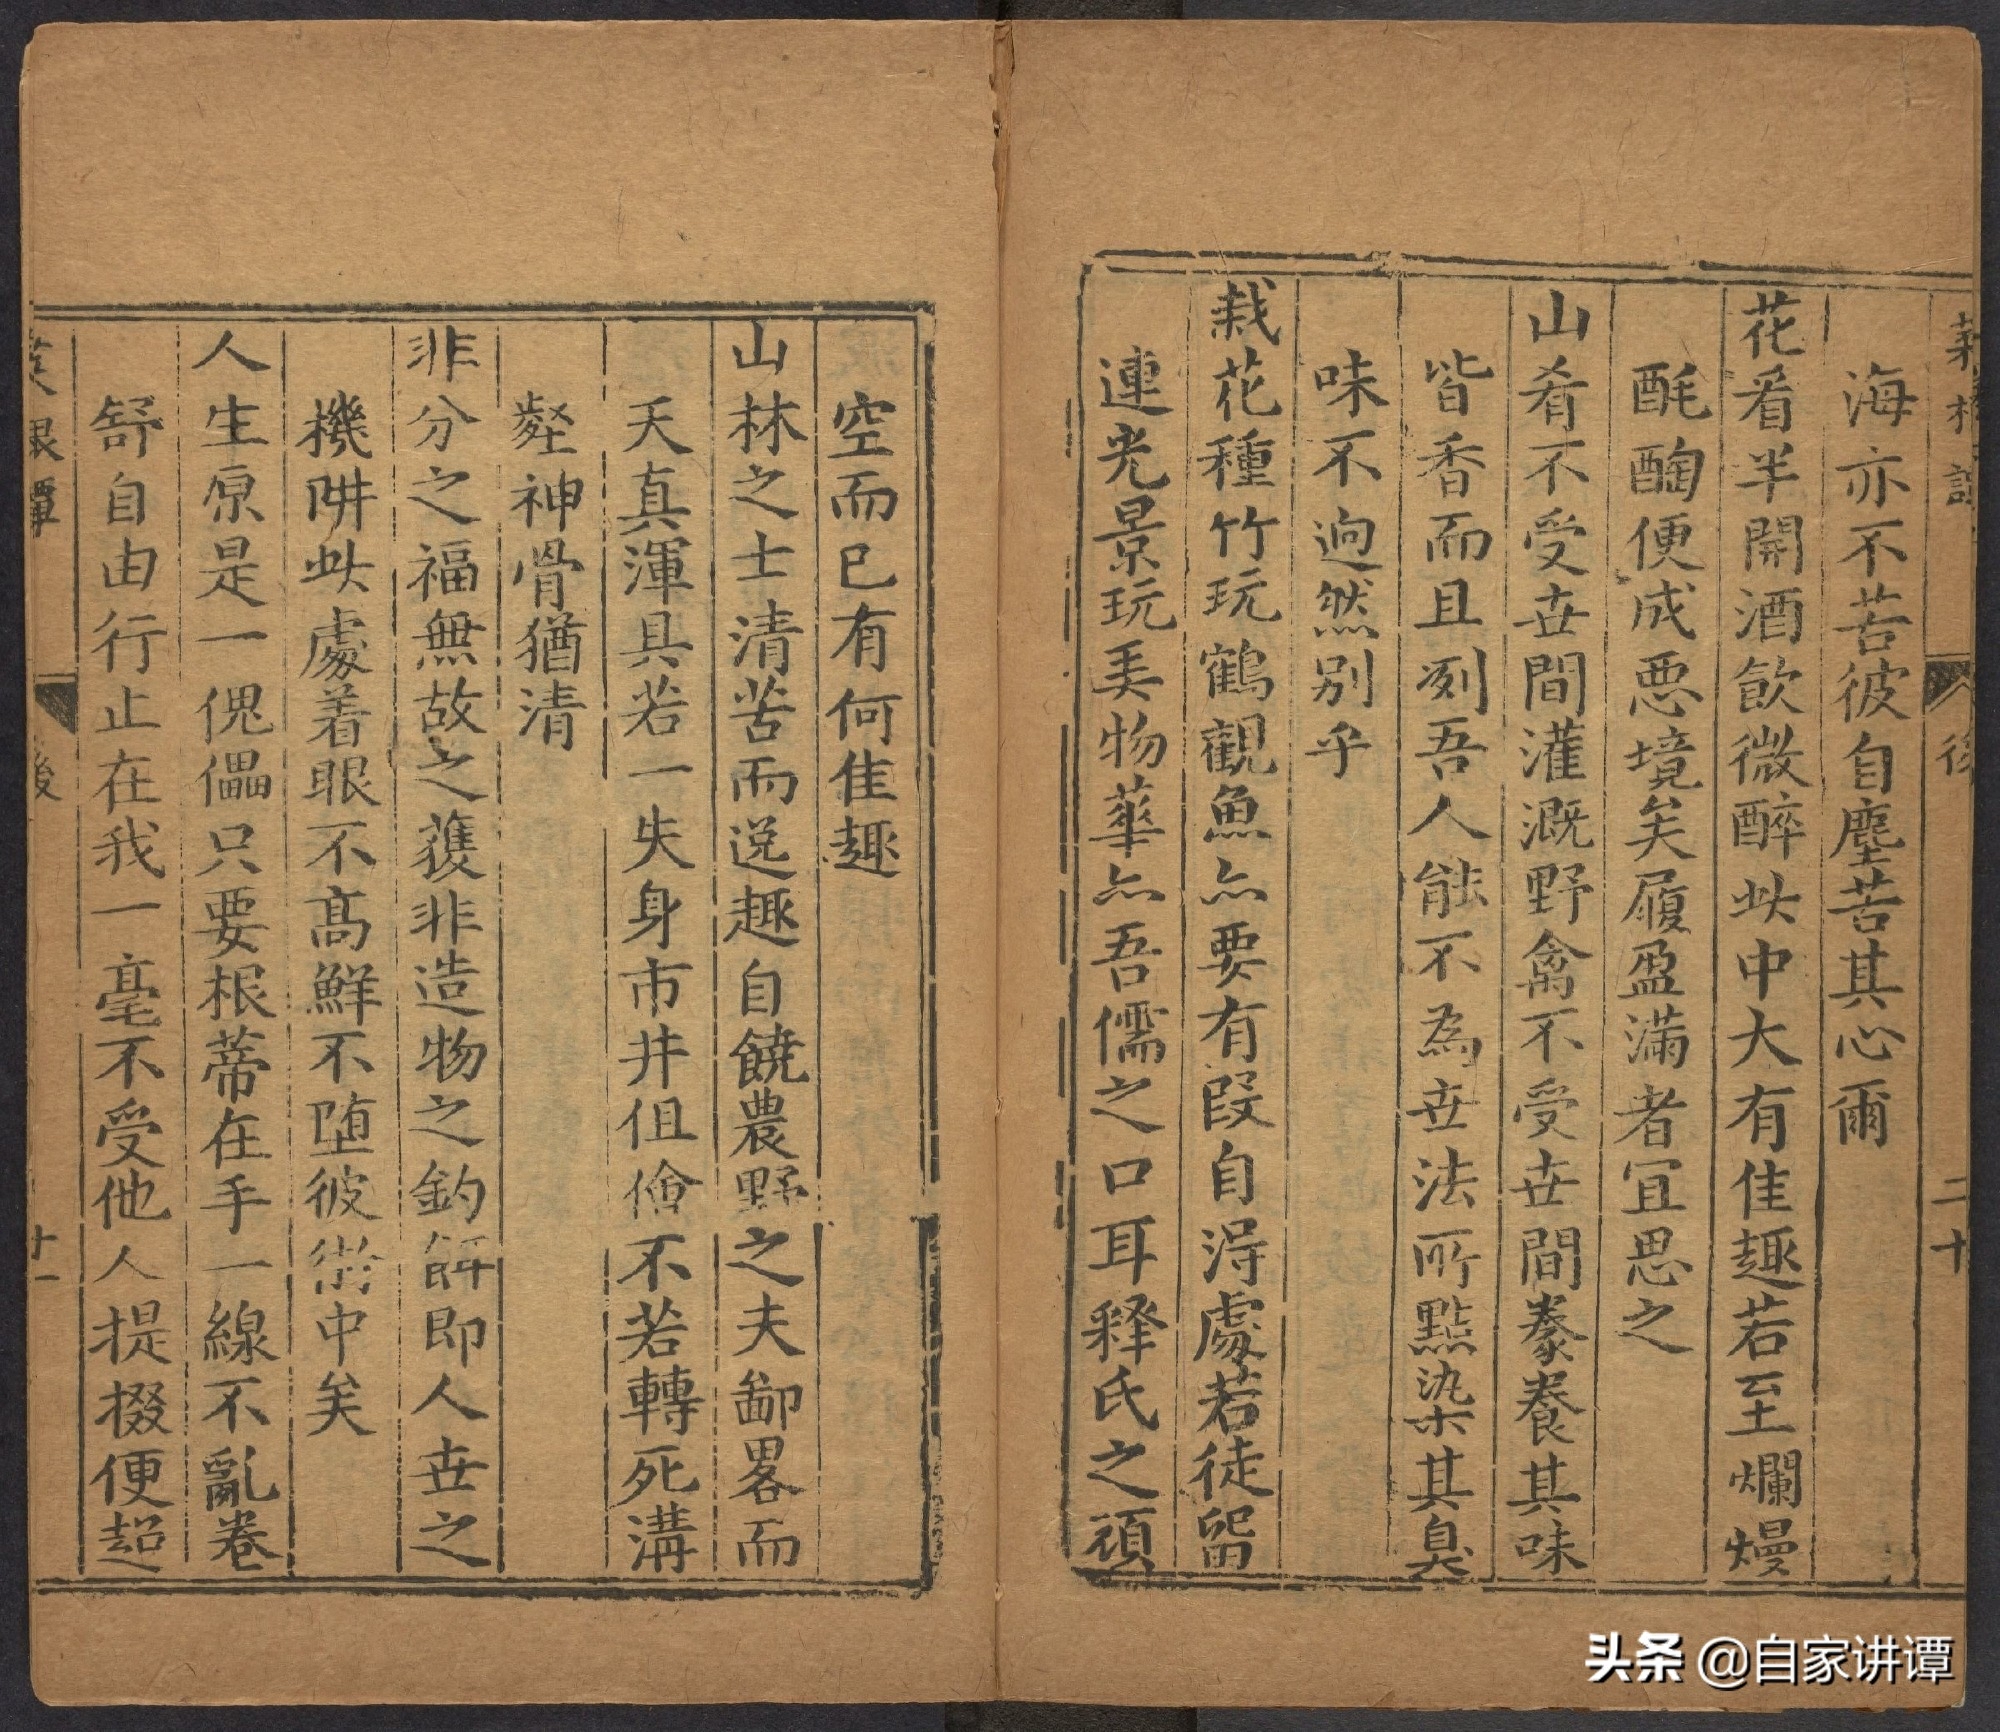 海亦不苦彼自塵苦其心爾
花看半開酒飲微醉此中大有佳趣若至爛熳
酕醄便成惡境矣履盈滿者宜思之
山肴不受世間灌溉野禽不受世間豢養其味
皆香而且冽吾人能不為世法所點染其臭
味不逈然別乎
栽花種竹玩鶴觀魚亦要有段自淂處若徒留
連光景玩美物華亦吾儒之口耳釋氏之頑
菜根譚 後 二十
空而已有何佳趣
山林之士清苦而逸趣自饒農野之夫鄙畧而
天真渾具若一失身市井伹儈不若轉死溝
壑神骨猶清
非分之福無故之獲非造物之釣餌即人世之
機阱此處着眼不高鮮不堕彼術中矣
人生原是一傀儡只要根蒂在手一線不亂卷
舒自由行止在我一毫不受他人提掇便超
菜根譚 後 十一
头条 @自家讲谭